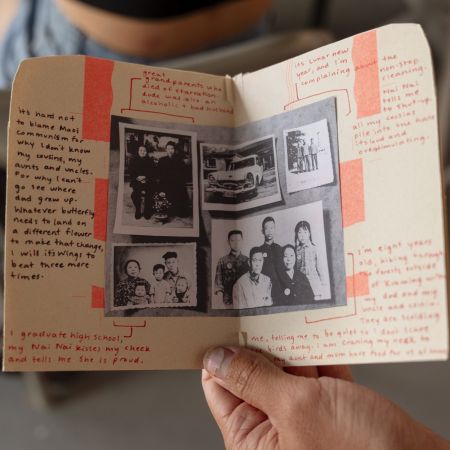 it's hard not
to blame Maos
Communism for
why I don't know
my cousins, my
aunts and uncles.
For why I can't
go see where
dad grew up.
Whatever butterfly
needs to land on
a different flower
to make that change,
I will its wings to
beat three more
times.
great
grandparents who
died of starvation
dude was also an
alcoholic + bad husband
I graduate high school,
my Nai Nai kisses my cheek
and tells me she is proud.
its lunar new
year, and I'm
complaining about the
non-stop
cleaning.
Nai Nai
tells me
to shut-up.
all my cousins
pile into our house
its loud and
overstimulating.
I'm eight years
old, hiking through
the forests outside
of
with
my dad and my
uncle and cousin.
they are scolding
me, telling me to be quiet so I don't scare
birds away. I am craning my neck to
my aunt and mom have food for us at home